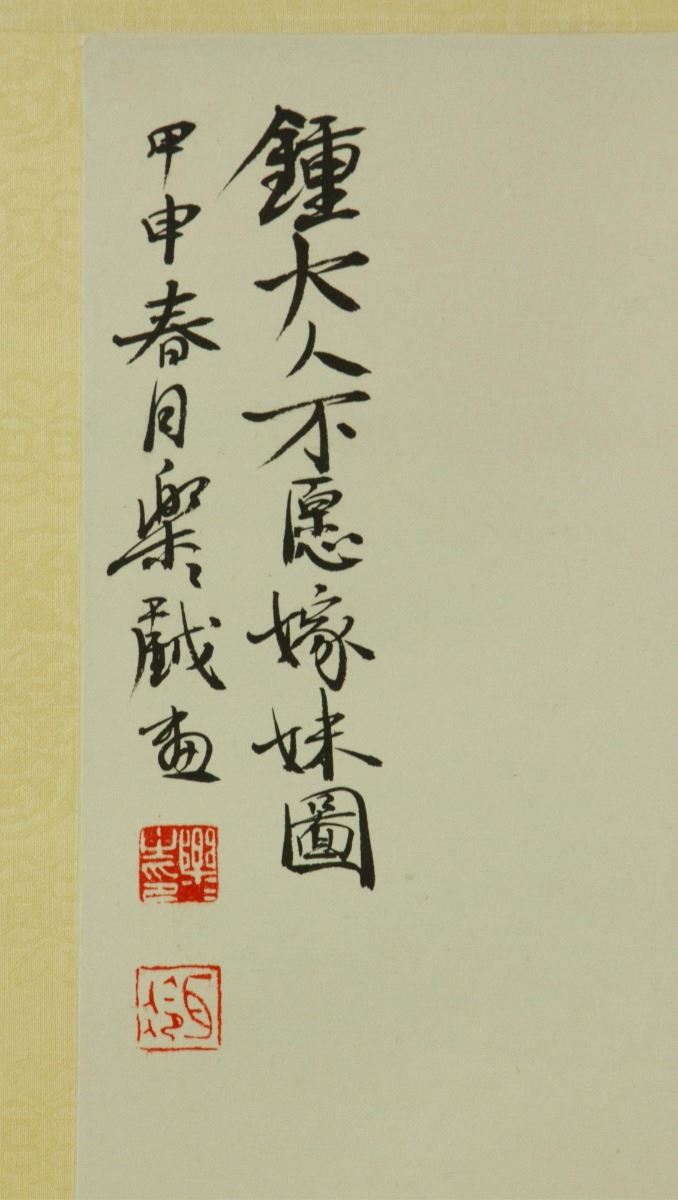 鍾大人不愿嫁妹圖
甲申春月樂々戲畫